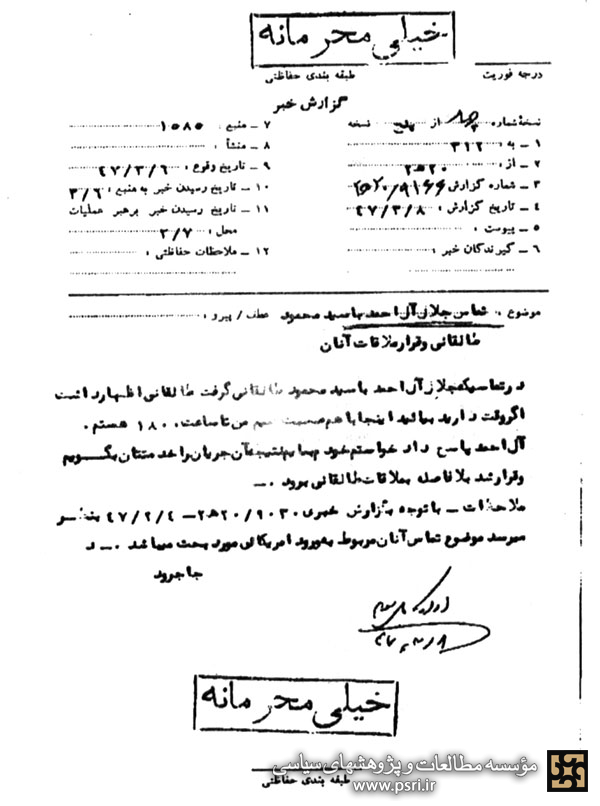 خیلی محرمانه
درجه فوریت
طبقه بندی حفاظتی
گزارش خبر
نسخهٔ شماره چهار از پنج نسخه
۱ ـ به : ۳۱۲
۲ ـ از : ۲۰ﻫ۲
۳ ـ شماره گزارش ۲۰ﻫ۲/۹۱۶۶
۴ ـ تاریخ گزارش : ۴۷/۳/۸
۵ ـ پیوست :
۶ ـ گیرندگان خبر :
۷ ـ منبع : ۱۵۸۵
۸ ـ منشأ :
۹ ـ تاریخ وقوع : ۴۷/۳/۶
۱۰ ـ تاریخ رسیدن خبر به منبع : ۳/۶
۱۱ ـ تاریخ رسیدن خبر برهبر عملیات
محل : ۳/۷
۱۲ ـ ملاحظات حفاظتی :
موضوع : تماس جلال آل احمد با سید محمود عطف / پیرو :
طالقانی و قرار ملاقات آنان
در تماسیکه جلال آل احمد با سید محمود طالقانی گرفت طالقانی اظهار داشت
اگر وقت دارید بیائید اینجا با هم صحبت کنیم من تا ساعت ۱۸۰۰ هستم .
آل احمد پاسخ داد خواستم خودم بیایم نتیجه آن جریان را خدمتتان بگویم
و قرار شد بلافاصله بملاقات طالقانی برود .ـ
ملاحظات ـ با توجه بگزارش خبری ۹۰۳۰/۲۰ﻫ۲ـ ۴۷/۲/۴ بنظر
میرسد موضوع تماس آنان مربوط به ورود امریکائی مورد بحث میباشد .ـ د
جاجرود
۴۷/۳/۸
خیلی محرمانه
طبقه بندی حفاظتی
مؤسسه مطالعات و پژوهشهای سیاسی
www.psri.ir